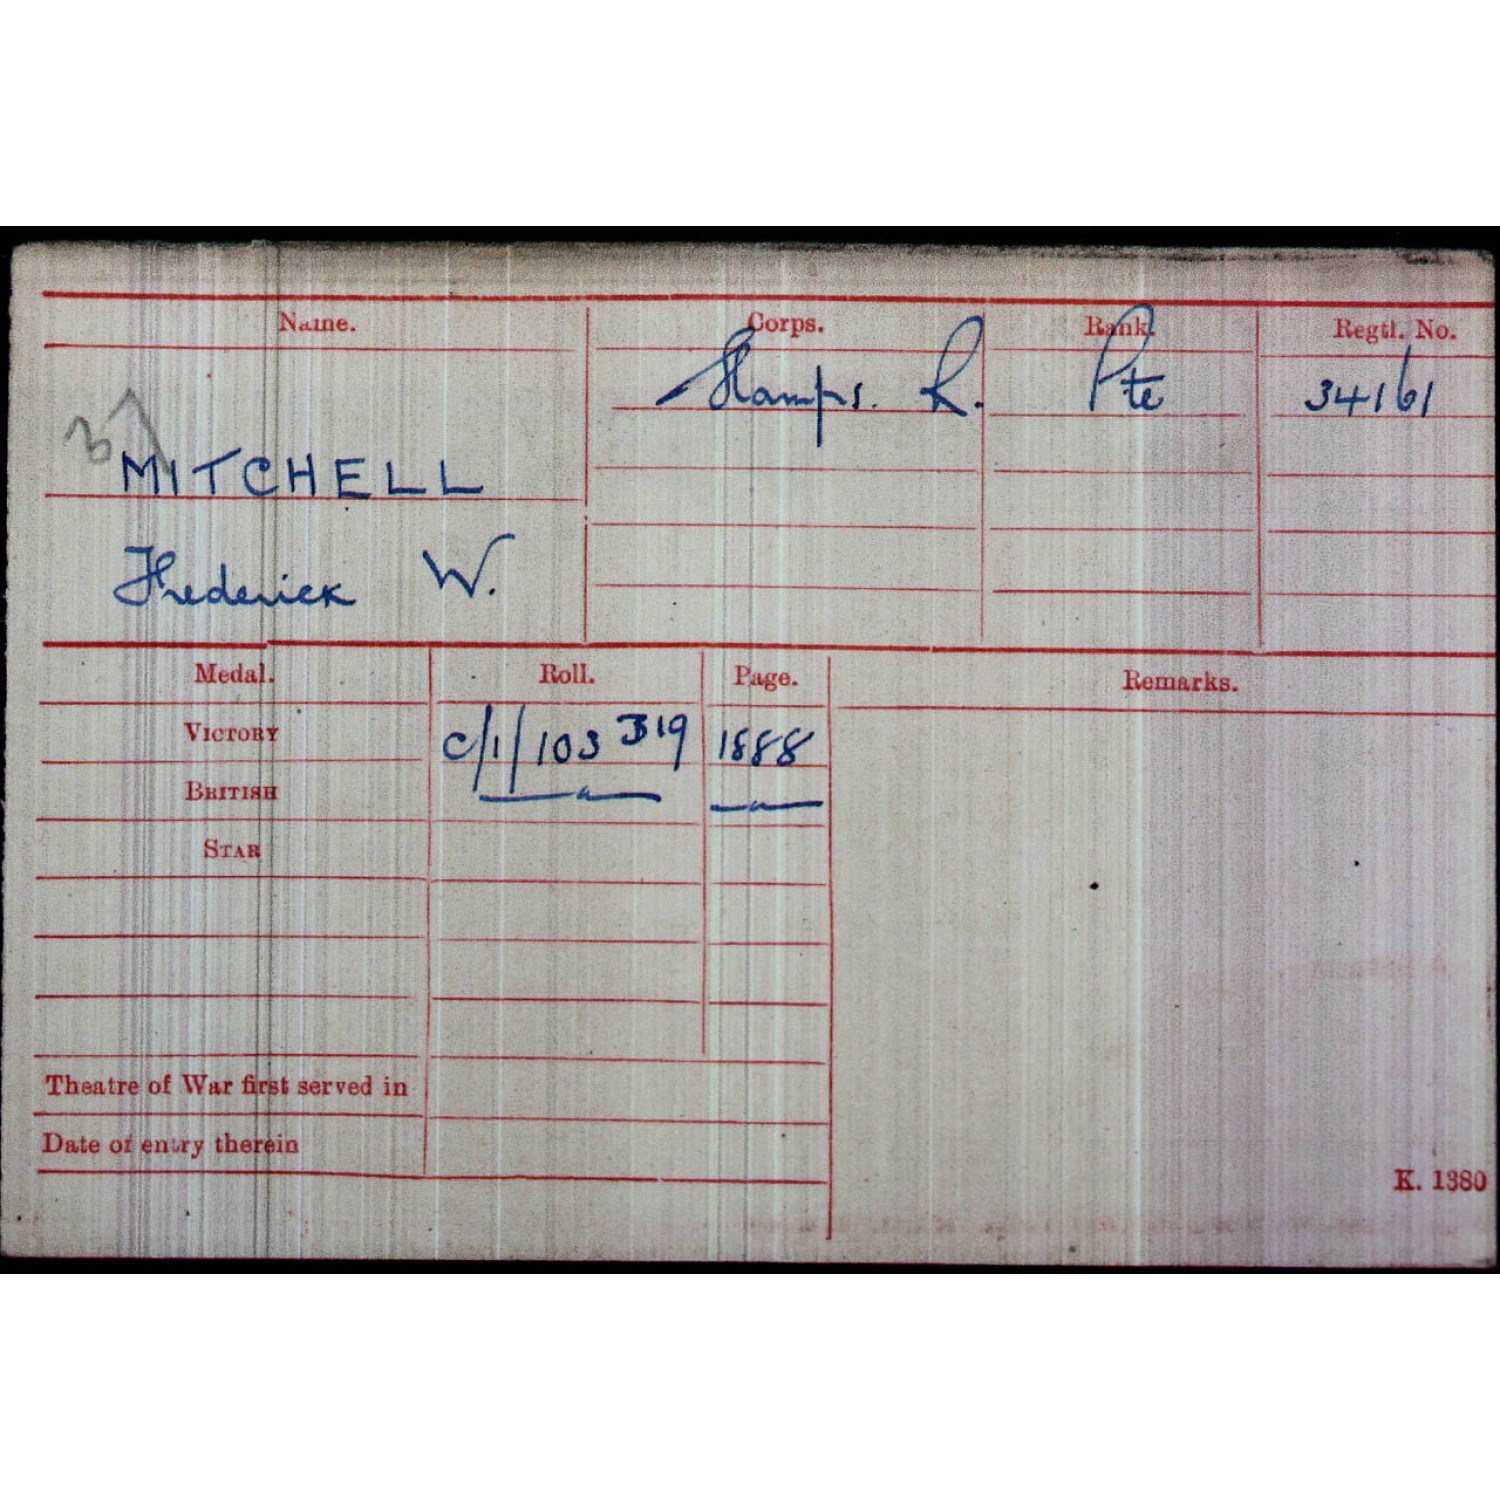 Name. Corps. Rank. Regtl. No.
Hamps. R. Pte 34161
MITCHELL
Frederick W.
Medal. Roll. Page. Remarks.
VICTORY C/1/103 B19 1888
BRITISH
STAR
Theatre of War first served in
Date of entry therein
K. 1380